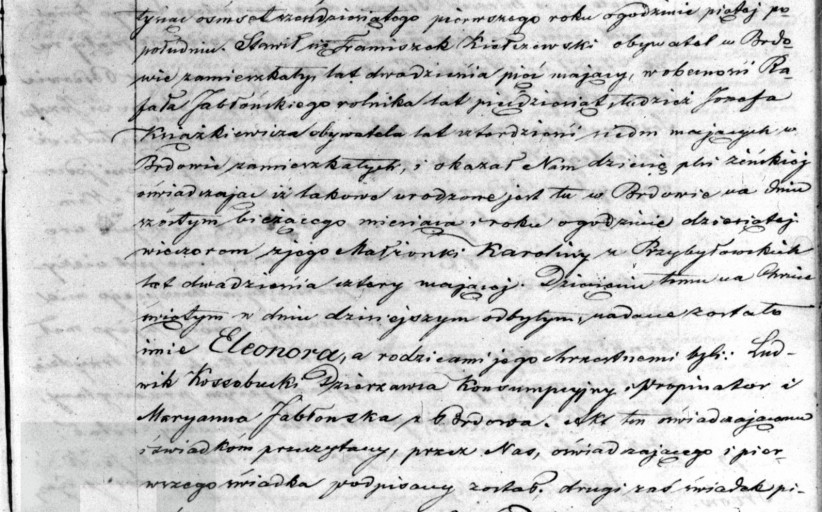 tysiąc ośmset sześćdziesiątego pierwszego roku o godzinie piątej po
południu. Stawił się Franciszek Kiełczewski obywatel w Brdo-
wie zamieszkały, lat dwadzieścia pięć mający, w obecności Ra-
fała Jabłońskiego rolnika lat pięćdziesiąt, tudzież Józefa
Książkiewicza obywatela lat czterdzieści siedm mających w
Brdowie zamieszkałych, i okazał Nam dziecię płci żeńskiej
oświadczając iż takowe urodzone jest tu w Brdowie na dniu
szóstym bieżącego miesiąca i roku o godzinie dziesiątej
wieczorem z jego Małżonki Karoliny z Przybyłowskich
lat dwadzieścia cztery mającej. Dziecięciu temu na Chrzcie
Świętym w dniu dzisiejszym odbytym, nadane zostało
imie Eleonora, a rodzicami jego chrzestnemi byli: Lud-
wik Kossobucki Dzierżawca Konsumpcyjny, Propinator i
Maryanna Jabłońska z Brdowa. Akt ten oświadczającemu
i świadkom przeczytany, przez Nas, oświadczającego i pier-
wszego świadka podpisany został. drugi zaś świadek pi-